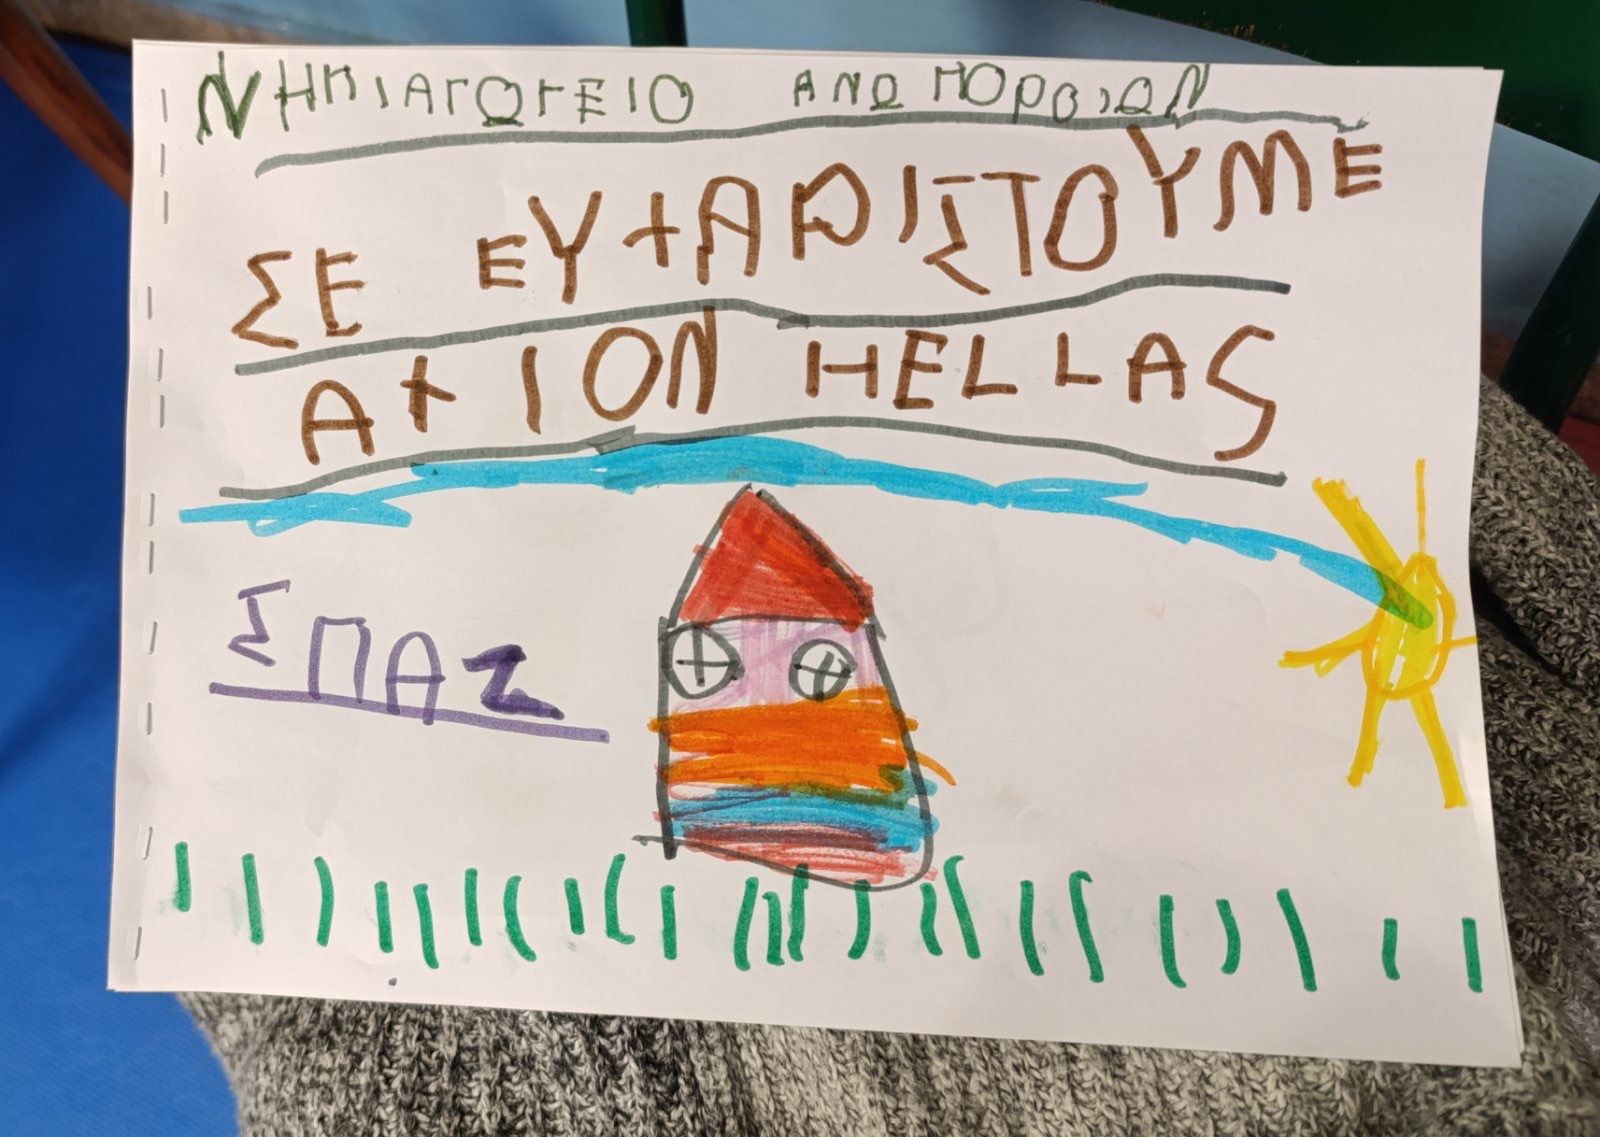 ΝΗΠΙΑΓΩΓΕΙΟ ΑΝΩ ΠΟΡΟΙΩΝ
ΣΕ ΕΥΧΑΡΙΣΤΟΥΜΕ
ΑΧΙΟΝ HELLAS
ΣΠΑΖ